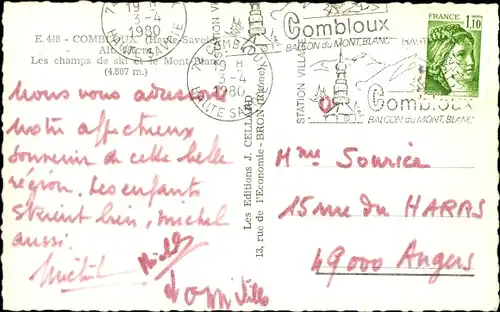 E. 448 - COMBLOUX (Haute-Savoie)
Les champs de ski et le Mont-Blanc
(4.807 m.)
19 H
3-4
1980
HAUTE SAVOIE
19 H
3-4
1980
HAUTE SAVOIE
STATION VILLAGE
Combloux
BALCON DU MONT.BLANC
STATION VILLAGE
Combloux
BALCON DU MONT.BLANC
FRANCE
1,10
Nous vous adressons
notre affectueux
souvenir de cette belle
région. Les enfants
skient bien, michel
aussi.
Michel
Les Editions J. CELLARD
13, rue de l'Economie-BRON (Rhône)
Mme Sourice
15 rue du HARAS
49000 Angers